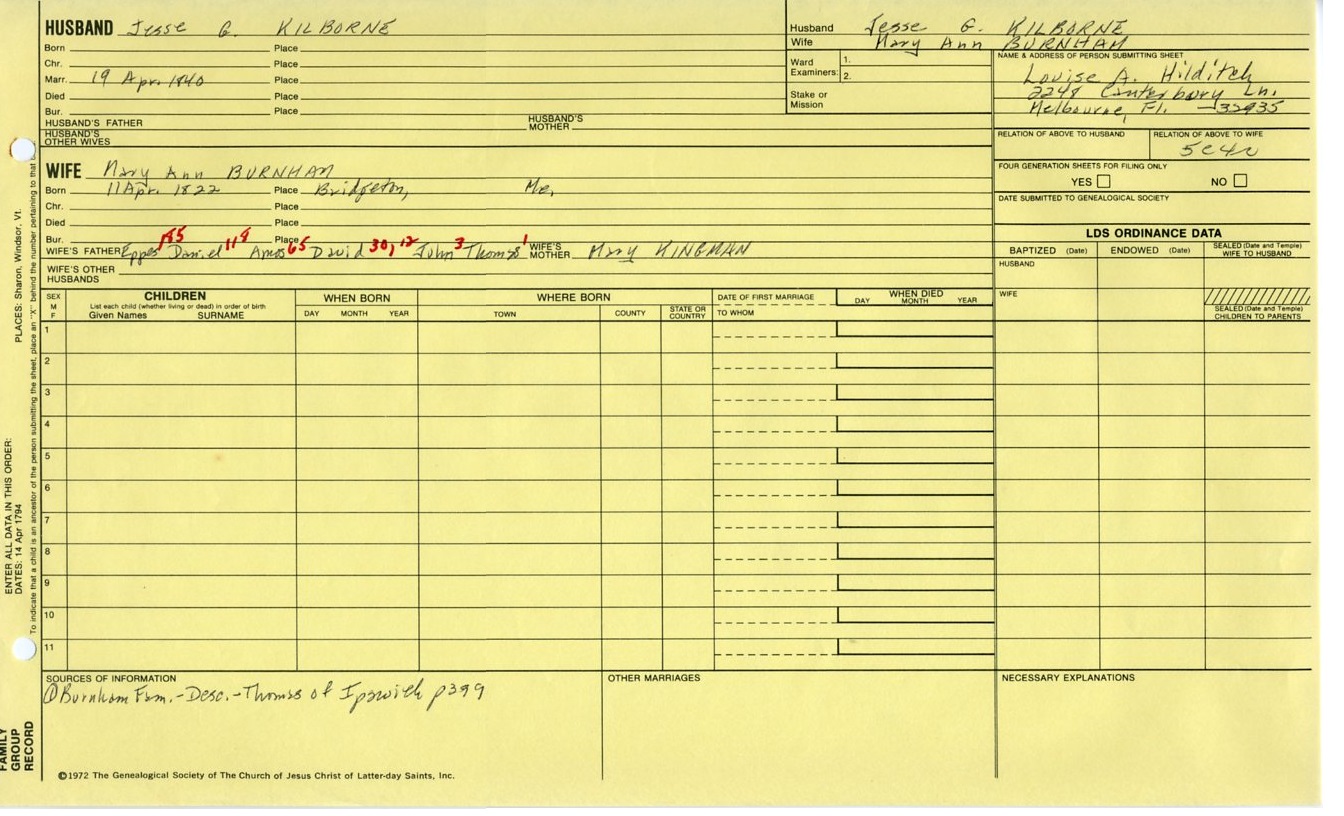 HUSBAND Jesse G. KILBORNE
Born Place
Chr. Place
Marr. 19 Apr. 1840 Place
Died Place
Bur. Place
HUSBAND'S FATHER HUSBAND'S MOTHER
HUSBAND'S OTHER WIVES
Husband Jesse G. KILBORNE
Wife Mary Ann BURNHAM
Ward Examiners: 1.
2.
Stake or Mission
NAME & ADDRESS OF PERSON SUBMITTING SHEET
Louise A. Hilditch
2248 Canterbury Ln.
Melbourne, Fl. 32935
RELATION OF ABOVE TO HUSBAND RELATION OF ABOVE TO WIFE
5c4r
FOUR GENERATION SHEETS FOR FILING ONLY
YES NO
DATE SUBMITTED TO GENEALOGICAL SOCIETY
WIFE Mary Ann BURNHAM
Born 11 Apr. 1822 Place Bridgeton, Me.
Chr. Place
Died Place
Bur. Place
185 118 65 30, 12 3 1
WIFE'S FATHER Eppes Daniel Amos David John Thomas WIFE'S MOTHER Mary KINGMAN
WIFE'S OTHER HUSBANDS
LDS ORDINANCE DATA
BAPTIZED (Date) ENDOWED (Date) SEALED (Date and Temple) WIFE TO HUSBAND
HUSBAND
WIFE
SEALED (Date and Temple) CHILDREN TO PARENTS
SEX M F
CHILDREN
List each child (whether living or dead) in order of birth
Given Names SURNAME
WHEN BORN
DAY MONTH YEAR
WHERE BORN
TOWN COUNTY STATE OR COUNTRY
DATE OF FIRST MARRIAGE
TO WHOM
WHEN DIED
DAY MONTH YEAR
1
2
3
4
5
6
7
8
9
10
11
SOURCES OF INFORMATION
① Burnham Fam.-Desc.-Thomas of Ipswich p399
OTHER MARRIAGES
NECESSARY EXPLANATIONS
©1972 The Genealogical Society of The Church of Jesus Christ of Latter-day Saints, Inc.
FAMILY GROUP RECORD
ENTER ALL DATA IN THIS ORDER:
DATES: 14 Apr 1794
PLACES: Sharon, Windsor, Vt.
To indicate that a child is an ancestor of the person submitting the sheet, place an "X" behind the number pertaining to that